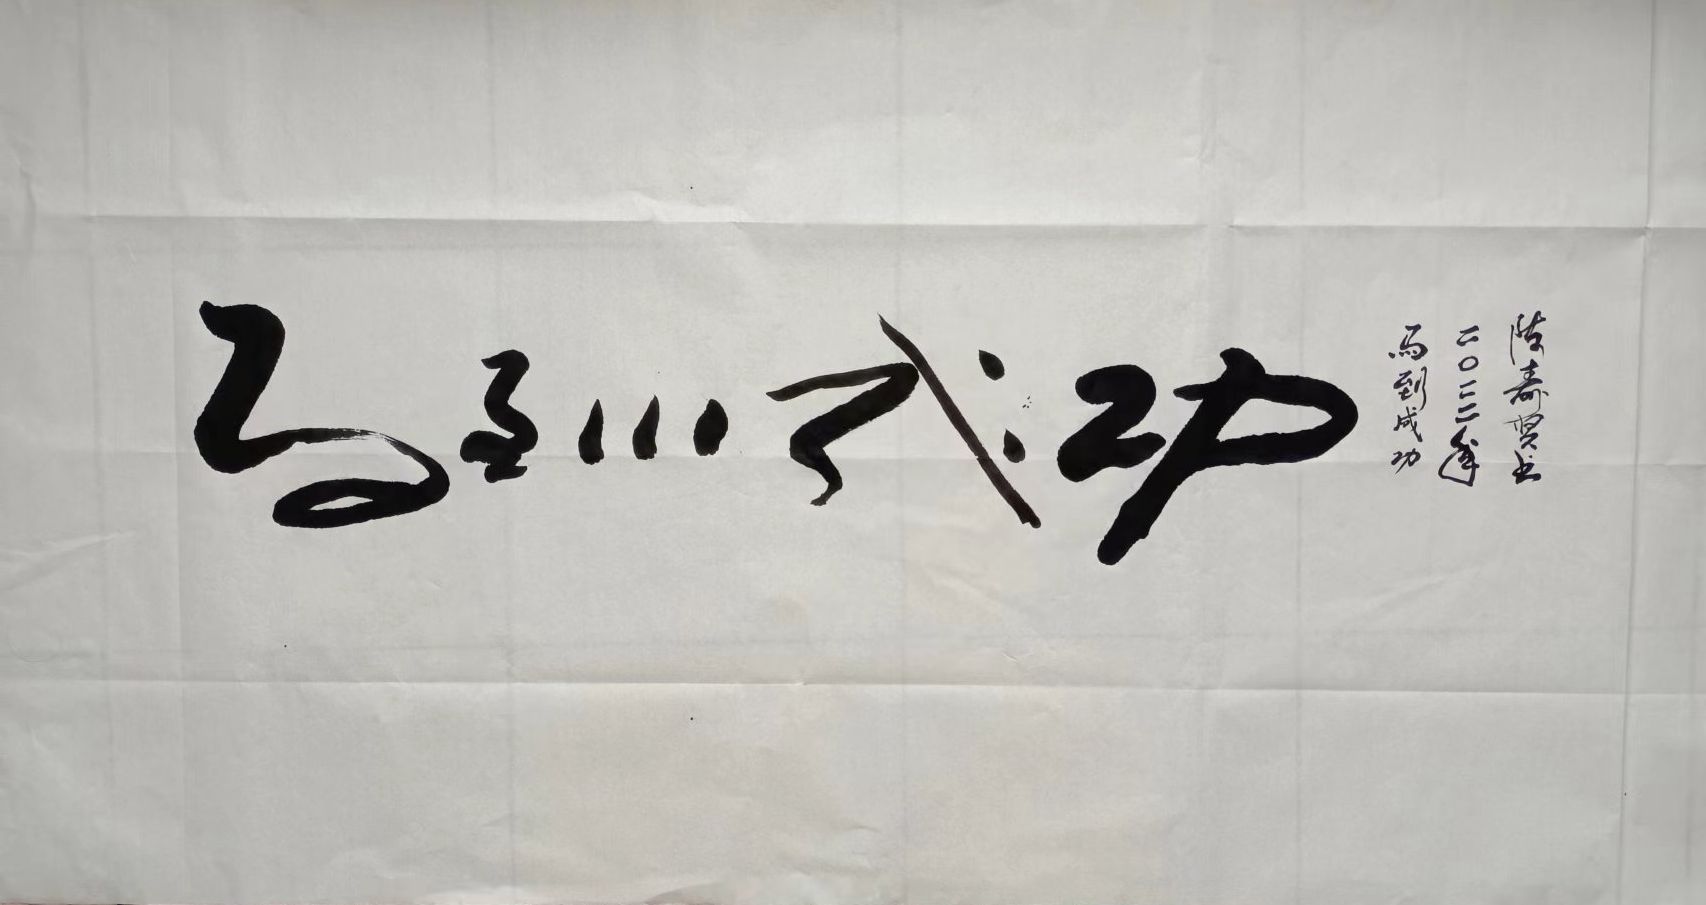 马到成功
马到成功
二〇二二年
陈寿贤书